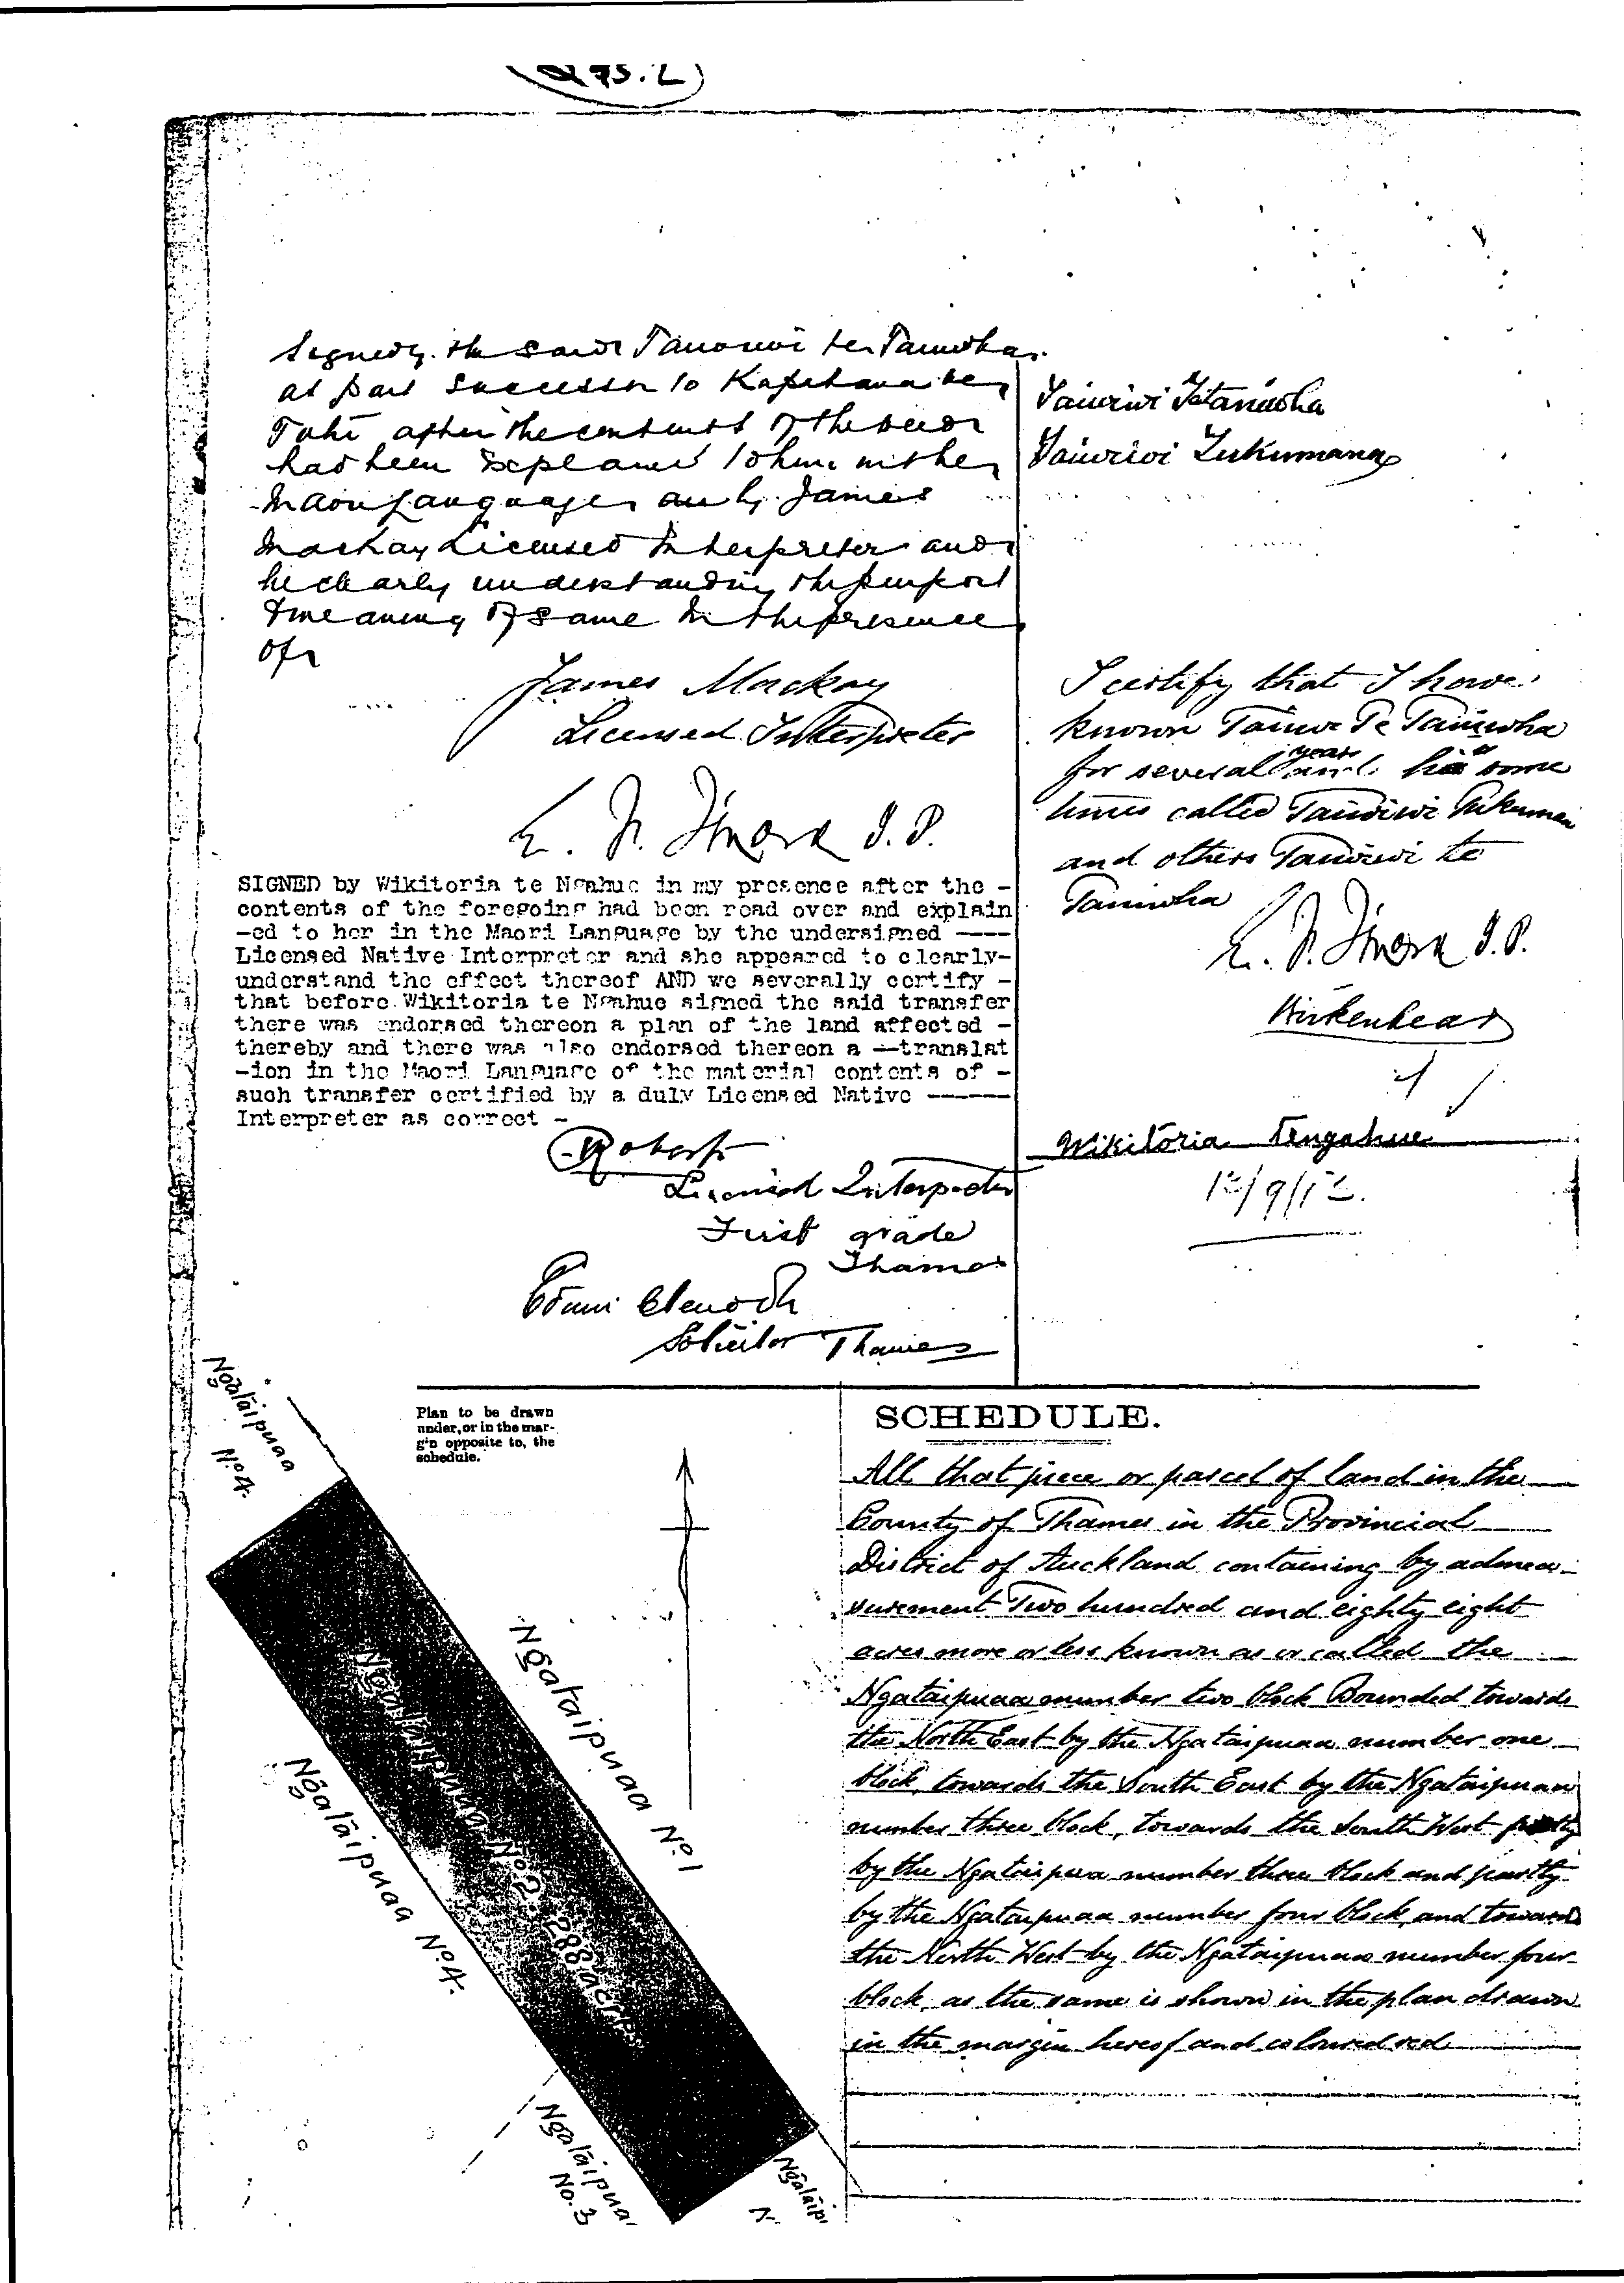 275.2
Signed by the said Tauwiwi te Taniwha
as part successor to Kapihana te
Tuhi after the contents of the deed
had been explained to him in the
Maori Language by James
Mackay Licensed Interpreter and
he clearly understanding the purport
& meaning of same in the presence
of
Tauwiwi Tetaniwha
Tauwiwi Tukumana
James Mackay
Licensed Interpreter
J.P.
I certify that I have
known Te Taniwha
for several years and is some
times called Tauwiwi
and others Tauwiwi te
Taniwha
J.P.
Birkenhead
SIGNED by Wikitoria te Ngahue in my presence after the -
contents of the foregoing had been read over and explain
-ed to her in the Maori Language by the undersigned ----
Licensed Native Interpreter and she appeared to clearly-
understand the effect thereof AND we severally certify -
that before Wikitoria te Ngahue signed the said transfer
there was endorsed thereon a plan of the land affected -
thereby and there was also endorsed thereon a --translat
-ion in the Maori Language of the material contents of -
such transfer certified by a duly Licensed Native ------
Interpreter as correct -
Wikitoria Tengahue
12/9/12.
Licensed Interpreter
First grade
Thames
Solicitor Thames
Plan to be drawn
under, or in the mar-
gin opposite to, the
schedule.
Ngataipuaa
No. 4.
Ngataipuaa No. 1
Ngataipuaa No. 2 288 acres
Ngataipuaa No. 4.
Ngataipua
No. 3
Ngataip
SCHEDULE.
All that piece or parcel of land in the
County of Thames in the Provincial
District of Auckland containing by admea-
surement Two hundred and eighty eight
acres more or less known as or called the
Ngataipuaa number two block Bounded towards
the North East by the Ngataipuaa number one
block, towards the South East by the Ngataipuaa
number three block, towards the South West partly
by the Ngataipua number three block and partly
by the Ngataipuaa number four block and towards
the North West by the Ngataipuaa number four
block, as the same is shown in the plan drawn
in the margin hereof and coloured red